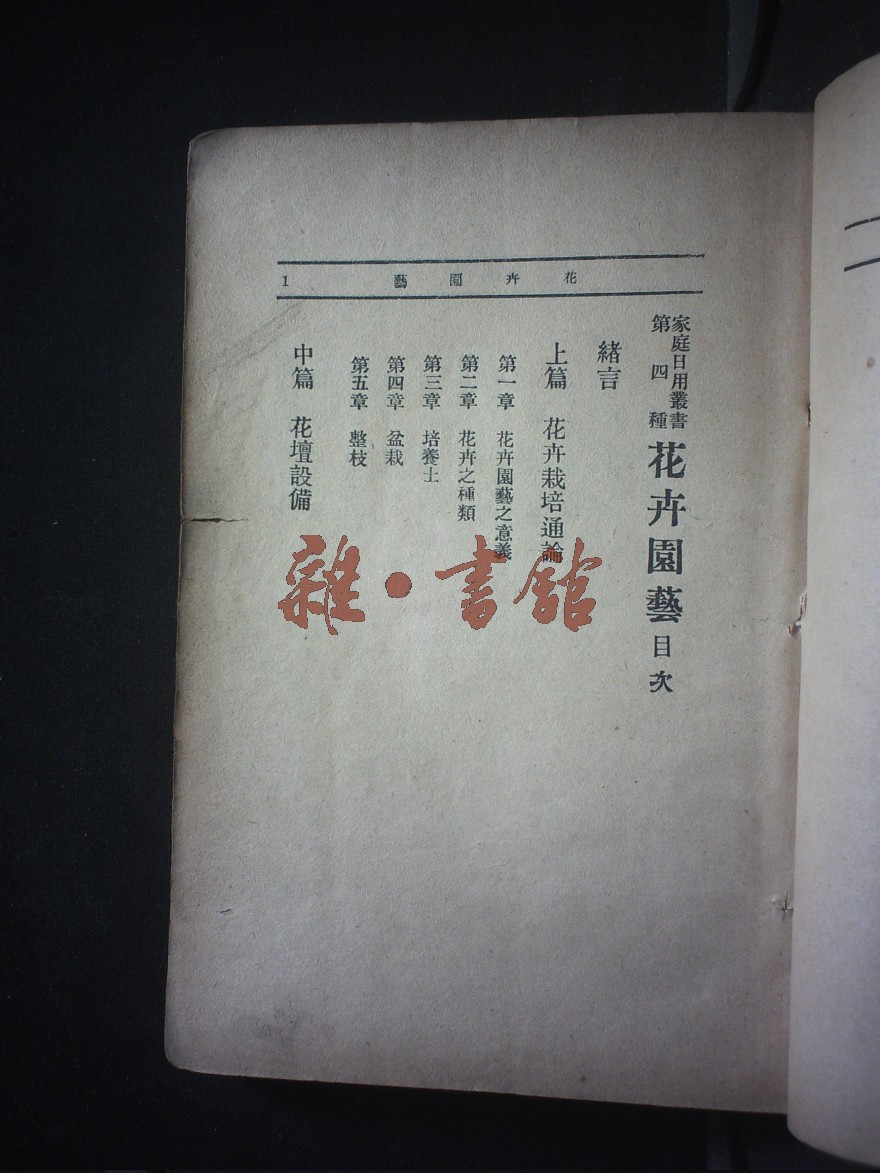 花卉園藝
1
家庭日用叢書
第四種
花卉園藝目次
緒言
上篇 花卉栽培通論
第一章 花卉園藝之意義
第二章 花卉之種類
第三章 培養土
第四章 盆栽
第五章 整枝
中篇 花壇設備
雜·書館